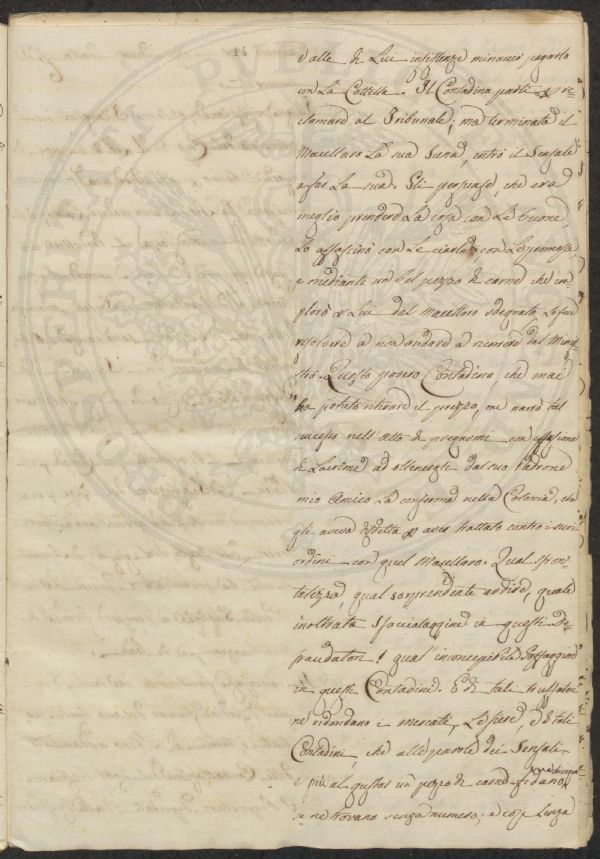 14
e alle di Lui insistenze minacciò pagarlo
con La Coltella. Il Contadino partì per re=
clamare al Tribunale; ma terminata il
Macellaro La sua Scena, entrò il Sensale
a far La sua. Gli persuase, che era
meglio prendere La cosa con Le buone,
Lo assassinò con Le ciarle, con Le promesse,
e mediante un bel pezzo di carne che im
plorò per Lui dal Macellaro sdegnato, Lo fece
risolvere a non andare a ricorrere dal Mini=
stro. Questo povero Contadino, che mai
ha potuto ritirare il prezzo, me narrò tal
successo nell'atto di pregarmi con effusione
di Lacrime ad ottenergli dal suo Padrone
mio Amico La conferma nella Colonia, che
gli aveva disdetta per aver trattato contro i suoi
ordini con quel Macellaro. Qual sfron=
tatezza, qual sorprendente ardire, quale
inoltrata sfacciataggine in questi De=
fraudatori! qual'inconcepibile
in questi Contadini. E di tali truffatori
ne ridondano i mercati, Le fiere, e di tali
Contadini, che alle parole dei Sensali
e più al gustar un pezzo di carne si dano
se ne trovano senza numero, e così senza